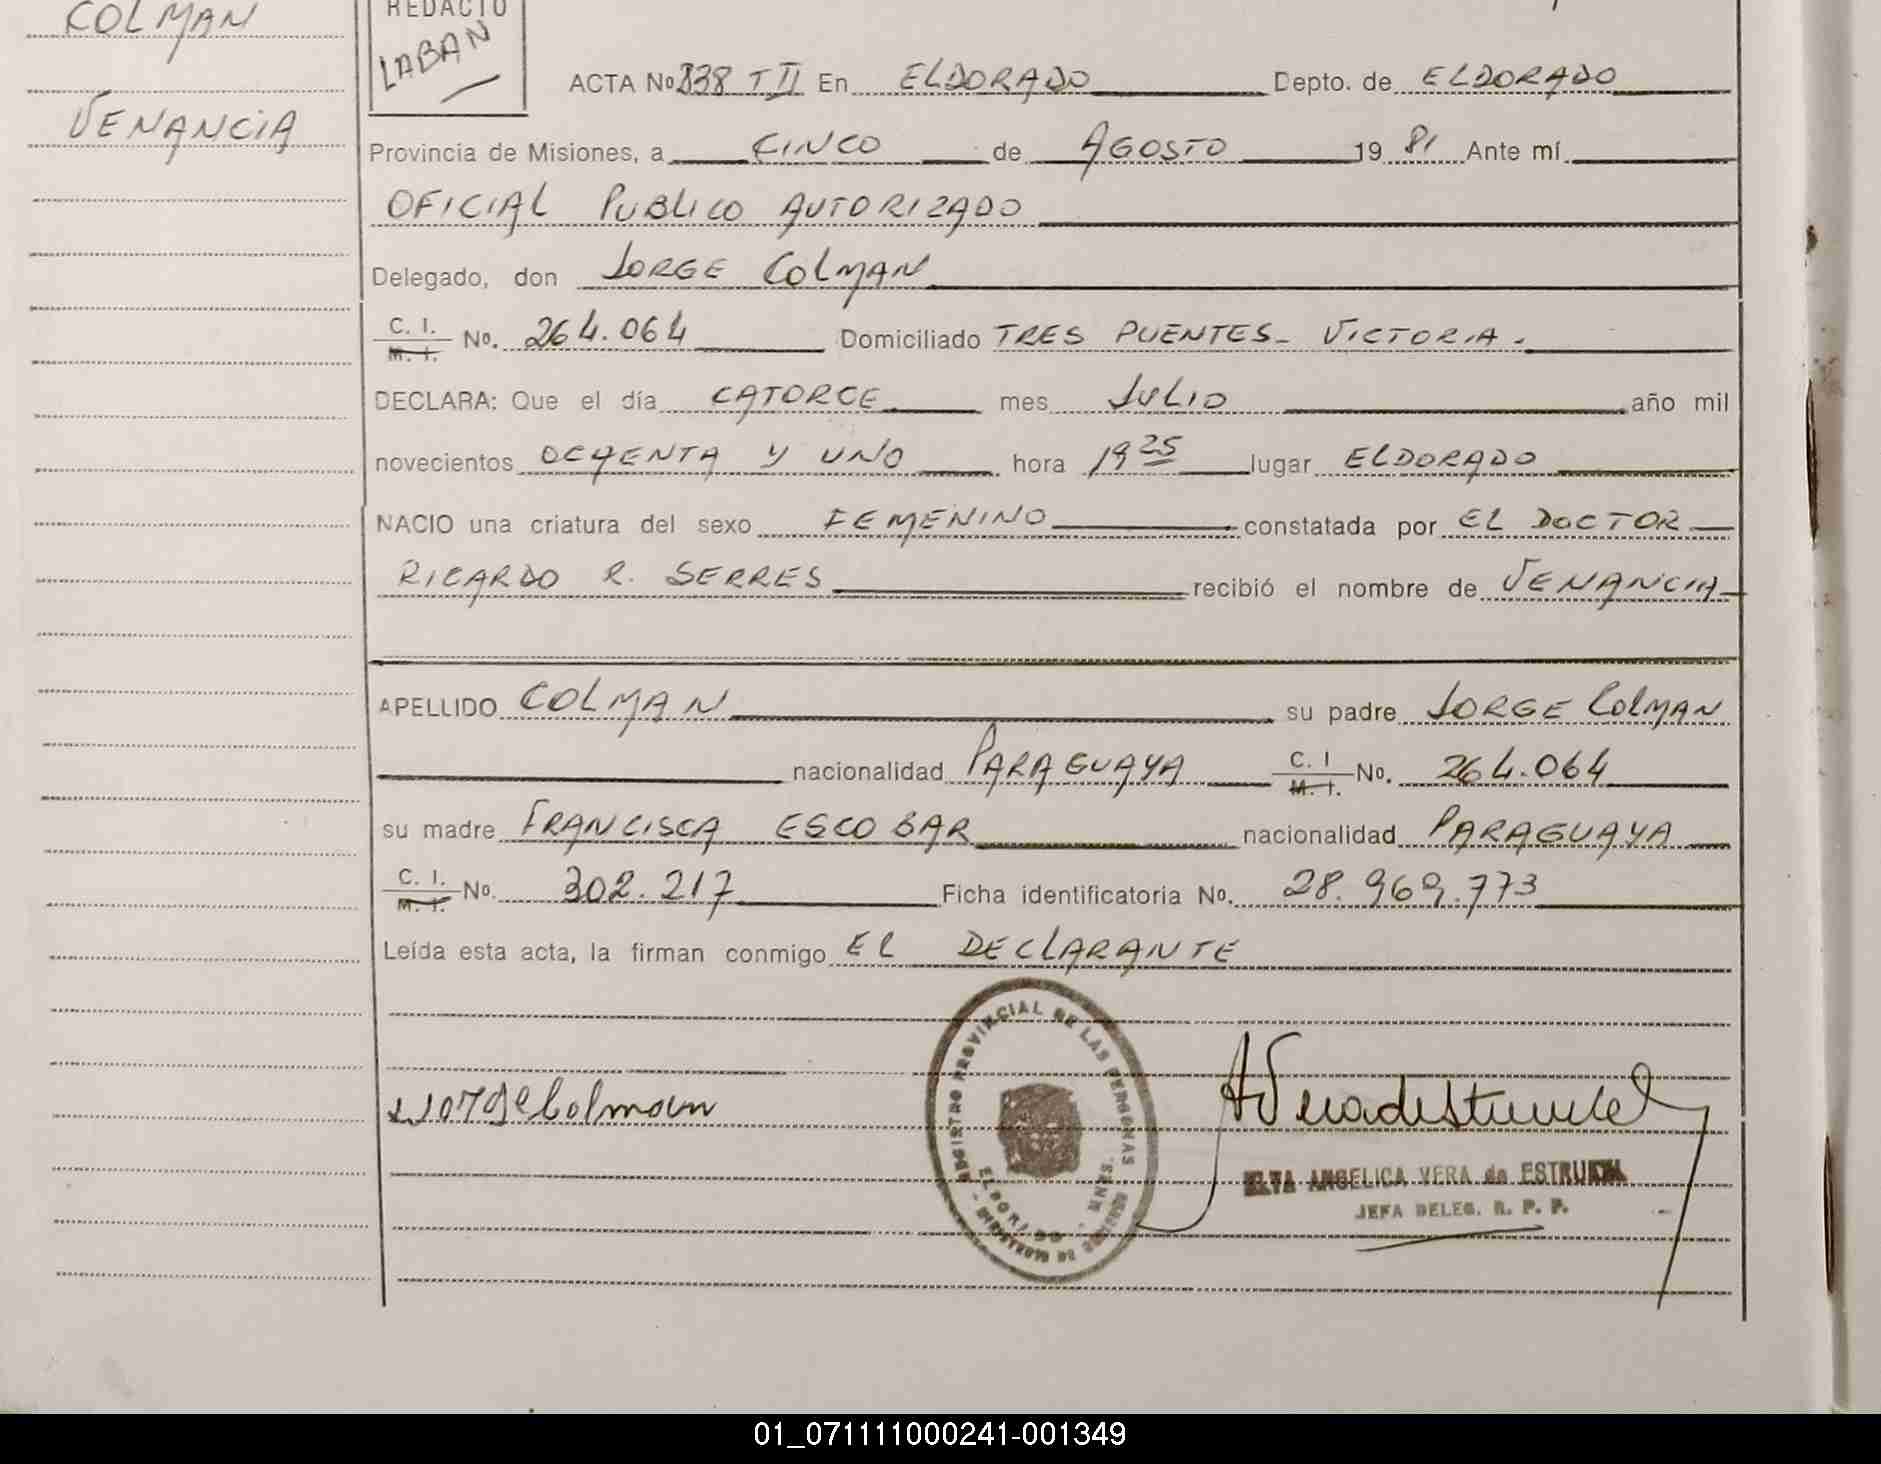 COLMAN
VENANCIA
REDACTO
LABAN
ACTA No 838 T II En ELDORADO Depto. de ELDORADO
Provincia de Misiones, a CINCO de AGOSTO 19 81 Ante mí
OFICIAL PUBLICO AUTORIZADO
Delegado, don JORGE COLMAN
C. I. M. I. No. 264.064 Domiciliado TRES PUENTES - VICTORIA.
DECLARA: Que el día CATORCE mes JULIO año mil
novecientos OCHENTA Y UNO hora 19 25 lugar ELDORADO
NACIO una criatura del sexo FEMENINO constatada por EL DOCTOR
RICARDO R. SERRES recibió el nombre de VENANCIA
APELLIDO COLMAN su padre JORGE COLMAN
nacionalidad PARAGUAYA C. I M. I. No. 264.064
su madre FRANCISCA ESCOBAR nacionalidad PARAGUAYA
C. I. M. I. No. 302.217 Ficha identificatoria No. 28.969.773
Leída esta acta, la firman conmigo EL DECLARANTE
REGISTRO PROVINCIAL DE LAS PERSONAS
ELDORADO MNES.
Jorge Colman
ANGELICA VERA de ESTRUEL
JEFA DELEG. R. P. P.
01_071111000241-001349